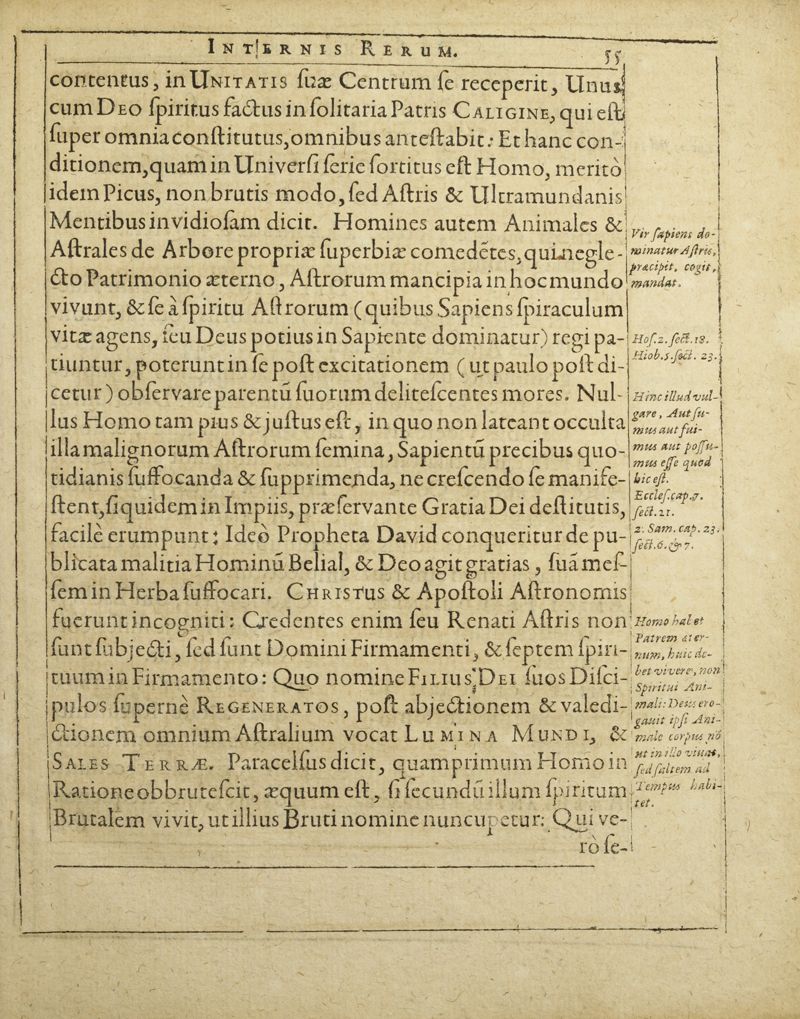 INTERNIS RERUM. 55
contentus, in UNITATIS suæ Centrum se receperit, Unus
cum DEO spiritus factus in solitaria Patris CALIGINE, qui est
super omnia constitutus, omnibus antestabit: Et hanc con-
ditionem, quam in Universi serie sortitus est Homo, meritò
idem Picus, non brutis modo, sed Astris & Ultramundanis
Mentibus invidiosam dicit. Homines autem Animales &
Astrales de Arbore propriæ superbiæ comedétes, qui negle-
cto Patrimonio æterno, Astrorum mancipia in hoc mundo
vivunt, & se à spiritu Astrorum (quibus Sapiens spiraculum
vitæ agens, seu Deus potius in Sapiente dominatur) regi pa-
tiuntur, poterunt in se post excitationem (ut paulo post di-
cetur) observare parentū suorum delitescentes mores. Nul-
lus Homo tam pius & justus est, in quo non lateant occulta
illa malignorum Astrorum semina, Sapientū precibus quo-
tidianis suffocanda & supprimenda, ne crescendo se manife-
stent, siquidem in Impiis, præservante Gratia Dei destitutis,
facilè erumpunt: Ideò Propheta David conqueritur de pu-
blicata malitia Hominū Belial, & Deo agit gratias, suā mes-
sem in Herba suffocari. CHRISTUS & Apostoli Astronomis
fuerunt incogniti: Credentes enim seu Renati Astris non
sunt subjecti, sed sunt Domini Firmamenti, & septem spiri-
tuum in Firmamento: Quo nomine FILIUS DEI suos Disci-
pulos supernè REGENERATOS, post abjectionem & valedi-
ctionem omnium Astralium vocat LUMINA MUNDI, &
SALES TERRÆ. Paracelsus dicit, quamprimum Homo in
Ratione obbrutescit, æquum est, si secundū illum spiritum
Brutalem vivit, ut illius Bruti nomine nuncupetur: Qui ve-
rò se-
Vir sapiens do-
minatur Astris,
præcipit, cogit,
mandat.
Hos. 2. sect. 18.
Hiob. 5. sect. 23.
Hinc illud vul-
gare, Aut su-
mus aut fui-
mus aut possu-
mus esse quod
hic est.
Eccles. cap. 7.
sect. 21.
2. Sam. cap. 23.
sect. 6. & 7.
Homo habet
Patrem æter-
num, huic de-
bet vivere, non
Spiritui Ani-
mali: Deus ero-
gauit ipsi Ani-
male corpus nō
ut in illo viuat,
sed saltem ad
Tempus habi-
tet.